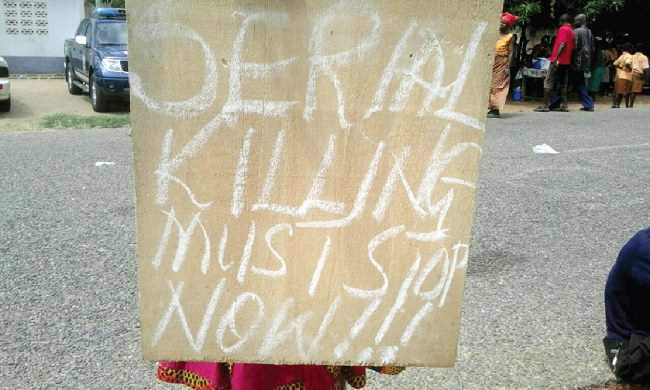 SERIAL
KILLING
MUST STOP
NOW!!!